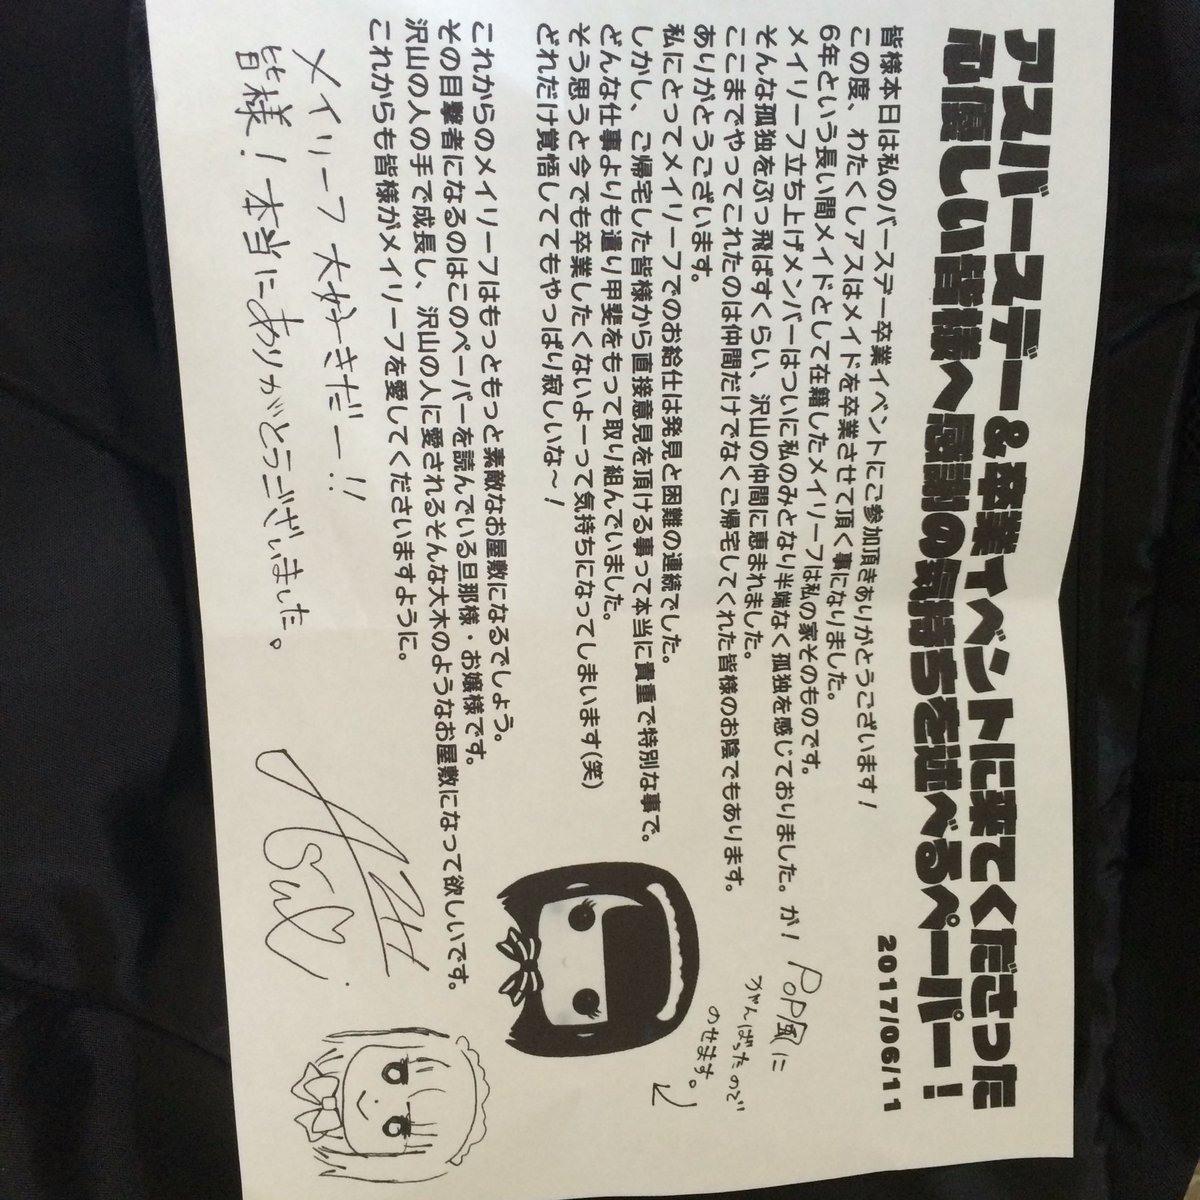 アスバースデー&卒業イベントに来てくださった
心優しい皆様へ感謝の気持ちを述べるペーパー!
2017/06/11
皆様本日は私のバースデー卒業イベントにご参加頂きありがとうございます!
この度、わたくしアスはメイドを卒業させて頂く事になりました。
6年という長い間メイドとして在籍したメイリーフは私の家そのものです。
メイリーフ立ち上げメンバーはついに私のみとなり半端なく孤独を感じておりました。が!
そんな孤独をぶっ飛ばすくらい、沢山の仲間に恵まれました。
ここまでやってこれたのは仲間だけでなくご帰宅してくれた皆様のお陰でもあります。
ありがとうございます。
私にとってメイリーフでのお給仕は発見と困難の連続でした。
しかし、ご帰宅した皆様から直接意見を頂ける事って本当に貴重で特別な事で。
どんな仕事よりも遣り甲斐をもって取り組んでいました。
そう思うと今でも卒業したくないよーって気持ちになってしまいます(笑)
どれだけ覚悟しててもやっぱり寂しいな〜!
これからのメイリーフはもっともっと素敵なお屋敷になるでしょう。
その目撃者になるのはこのペーパーを読んでいる旦那様・お嬢様です。
沢山の人の手で成長し、沢山の人に愛されるそんな大木のようなお屋敷になって欲しいです。
これからも皆様がメイリーフを愛してくださいますように。
POP風に
がんばったので
のせます。
メイリーフ大好きだー!!
皆様!本当にありがとうございました。